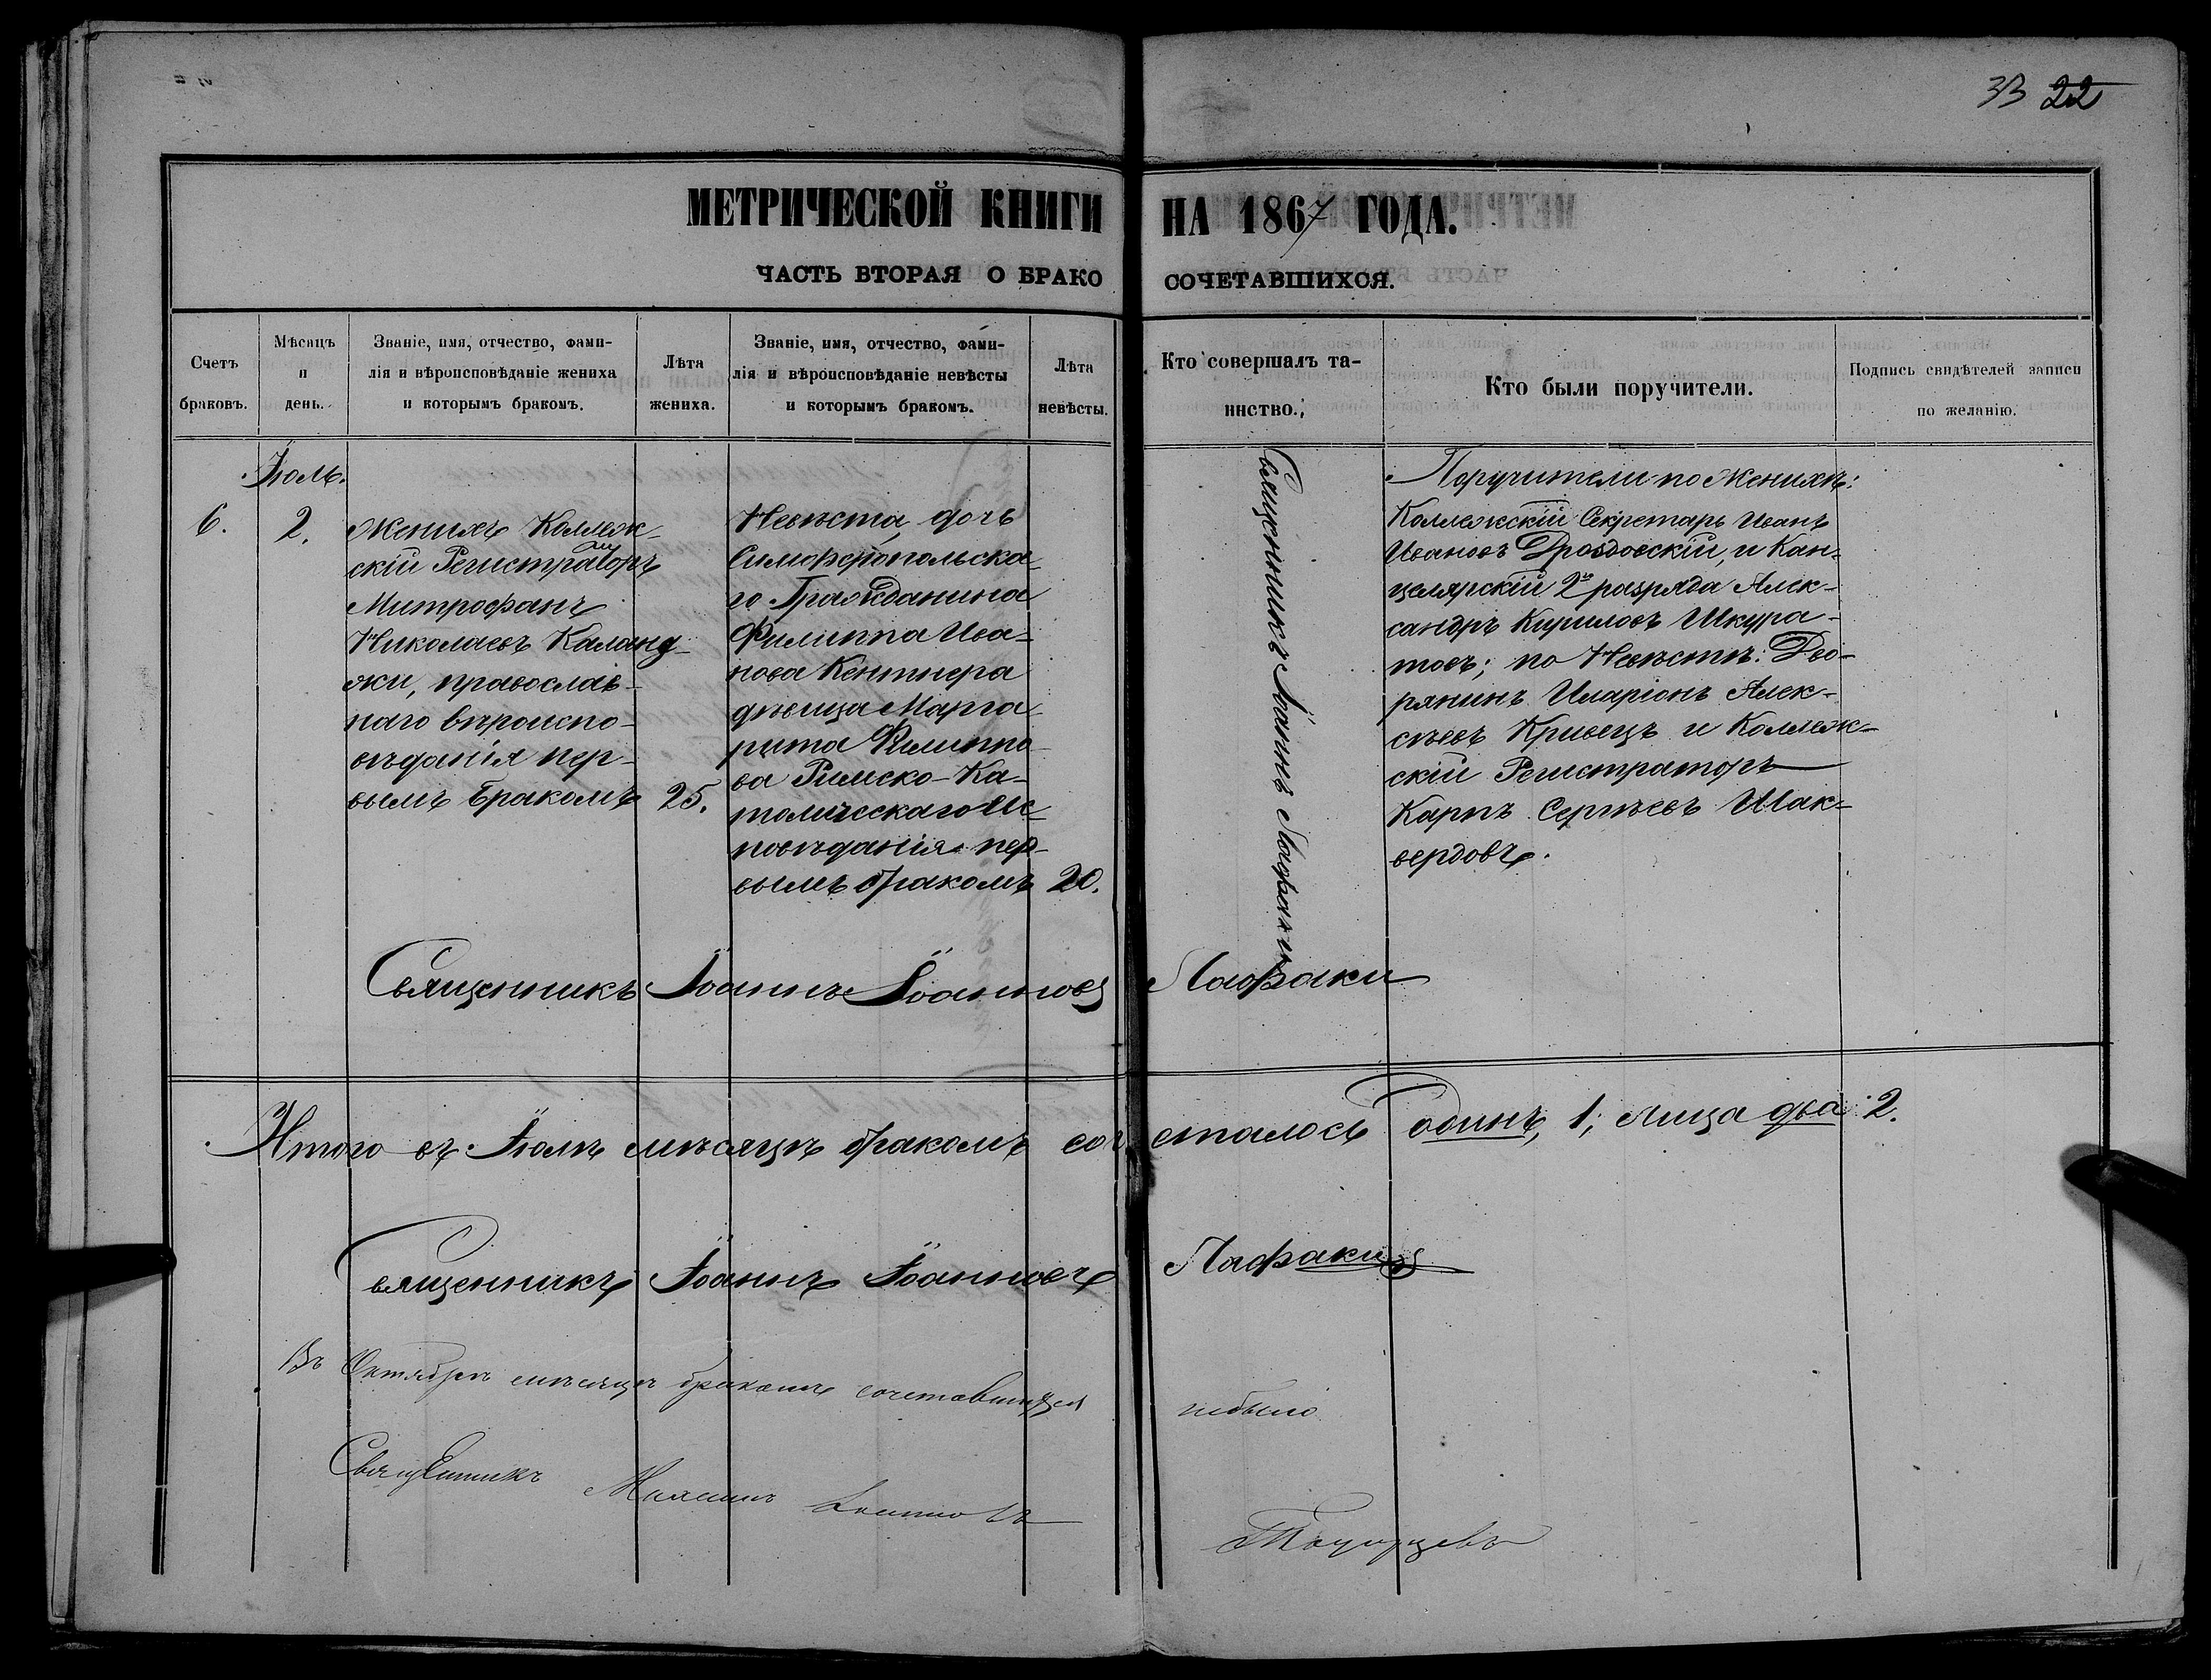 33 22
МЕТРИЧЕСКОЙ КНИГИ НА 1867 ГОДА.
ЧАСТЬ ВТОРАЯ О БРАКОСОЧЕТАВШИХСЯ.
Счетъ
браковъ.
Мѣсяцъ
и
день.
Званіе, имя, отчество, фами-
лія и вѣроисповѣданіе жениха
и которымъ бракомъ.
Лѣта
жениха.
Званіе, имя, отчество, фами-
лія и вѣроисповѣданіе невѣсты
и которымъ бракомъ.
Лѣта
невѣсты.
Кто совершалъ та-
инство.
Кто были поручители.
Подпись свидѣтелей записи
по желанію.
Іюль.
6.
2.
Женихъ Коллеж-
скій Регистраторъ
Митрофанъ
Николаевъ Каланд-
жи, православ-
наго вѣроиспо-
вѣданія пер-
вымъ бракомъ
25.
Невѣста, дочь
Симферопольска-
го Гражданина
Филиппа Ива-
нова Кентнера
дѣвица Марга-
рита Филиппо-
ва Римско-Ка-
толическаго Ис-
повѣданія пер-
вымъ бракомъ
20.
Священникъ Іоаннъ Лафаки
Поручители по Женихѣ:
Коллежскій Секретарь Иванъ
Ивановъ Дроздовскій, и Кан-
целярскій 2го разряда Алек-
сандръ Кириловъ Шкура-
товъ; по Невѣстѣ: Дво-
рянинъ Иларіонъ Алек-
сѣевъ Кривецъ и Коллеж-
скій Регистраторъ
Карпъ Сергѣевъ Шак-
вердовъ.
Священникъ Іоаннъ Іоанновъ Лафаки
Итого въ Іюлѣ мѣсяцѣ бракомъ сочеталось одинъ, 1; лица два 2.
Священникъ Іоаннъ Іоанновъ Лафаки
Въ Октябрѣ мѣсяцѣ бракомъ сочетавшихся небыло
Священникъ